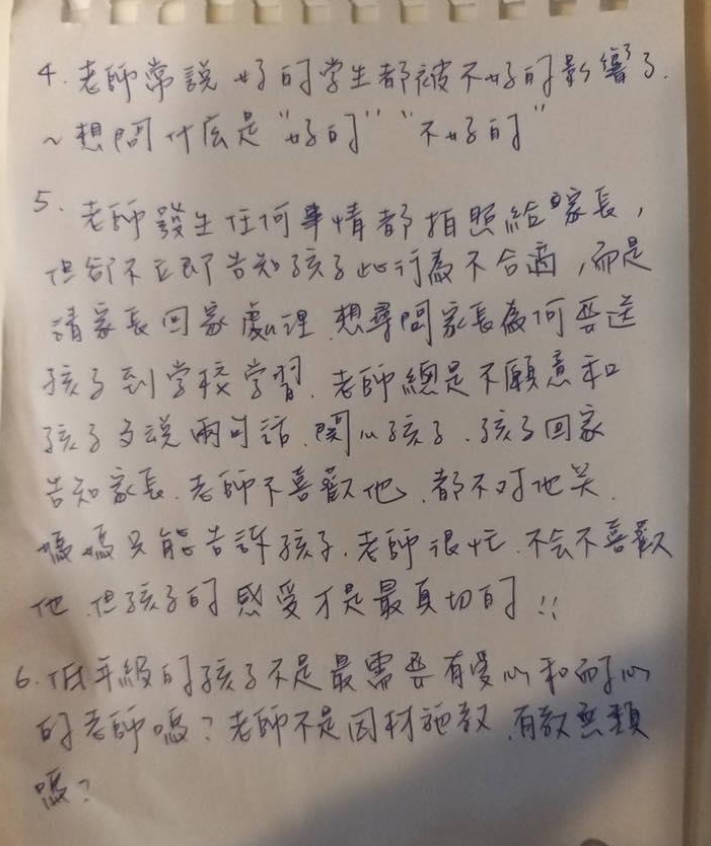 4. 老師常說好的学生都被不好的影響了.
~想問什広是"好的" "不好的"
5. 老師發生任何事情都拍照給家長,
但卻不立即告知孩子此行為不合適,而是
請家長回家處理.想尋問家長為何要送
孩子到学校学習.老師總是不願意和
孩子多說兩句話.関心孩子.孩子回家
告知家長.老師不喜歡他.都不对他笑.
媽媽只能告訴孩子.老師很忙.不会不喜歡
他.但孩子的感受才是最真切的!!
6.低年級的孩子不是最需要有愛心和耐心
的老師嗎?老師不是因材施教.有教無類
嗎?